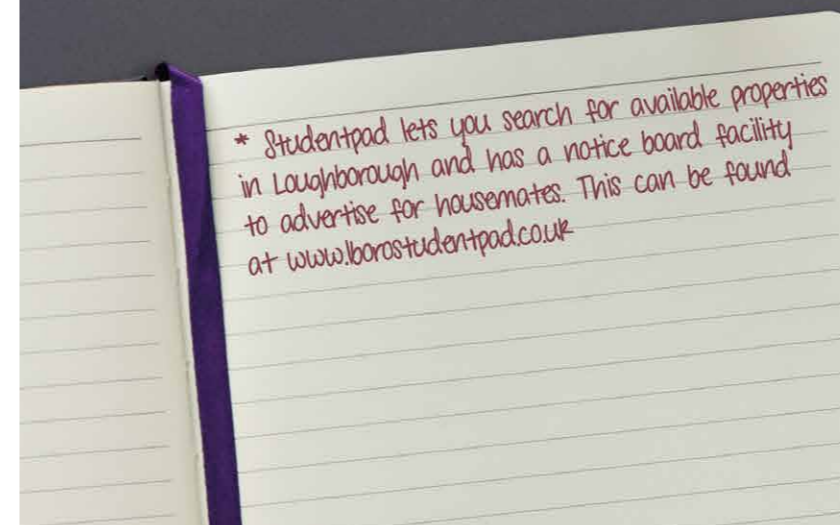 * Studentpad lets you search for available properties
in Loughborough and has a notice board facility
to advertise for housemates. This can be found
at www.lborostudentpad.co.uk